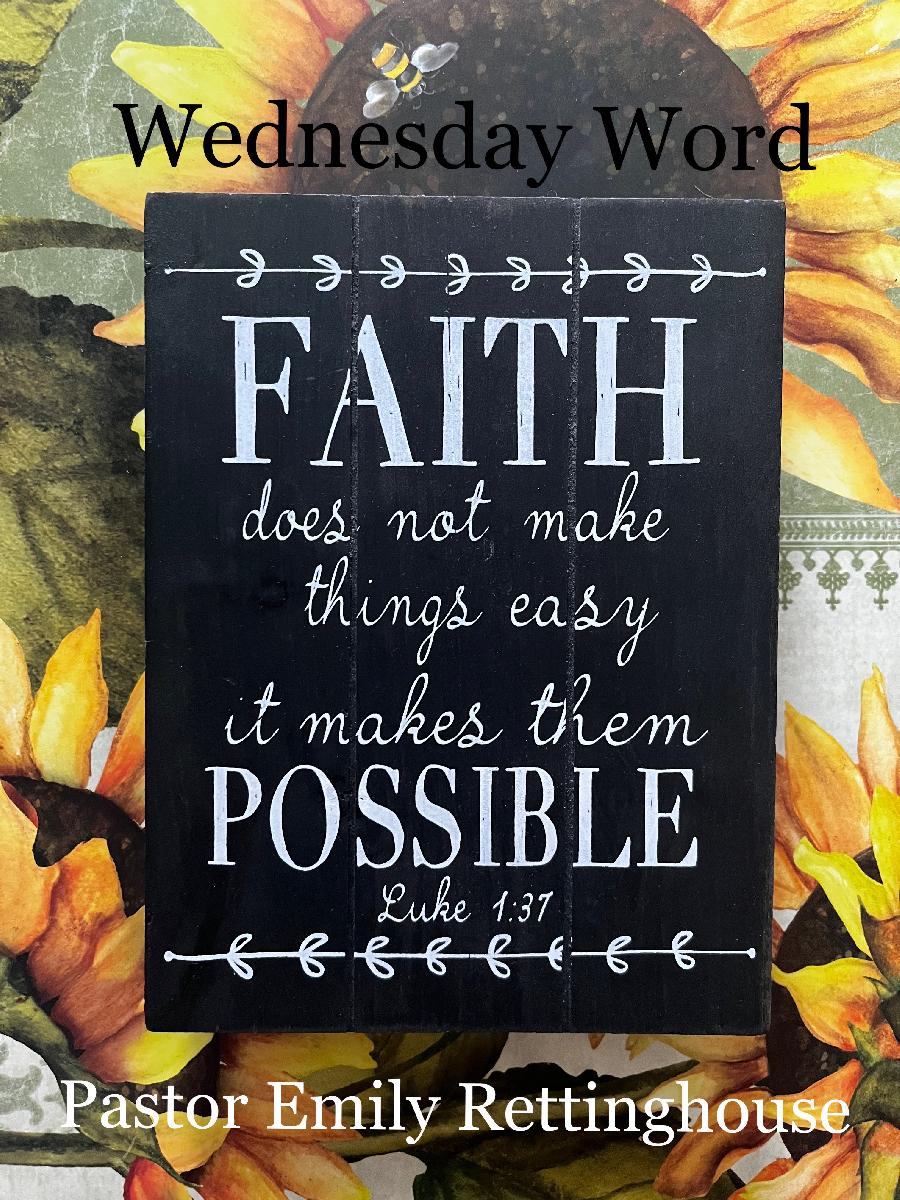 Wednesday Word
FAITH
does not make
things easy
it makes them
POSSIBLE
Luke 1:37
Pastor Emily Rettinghouse